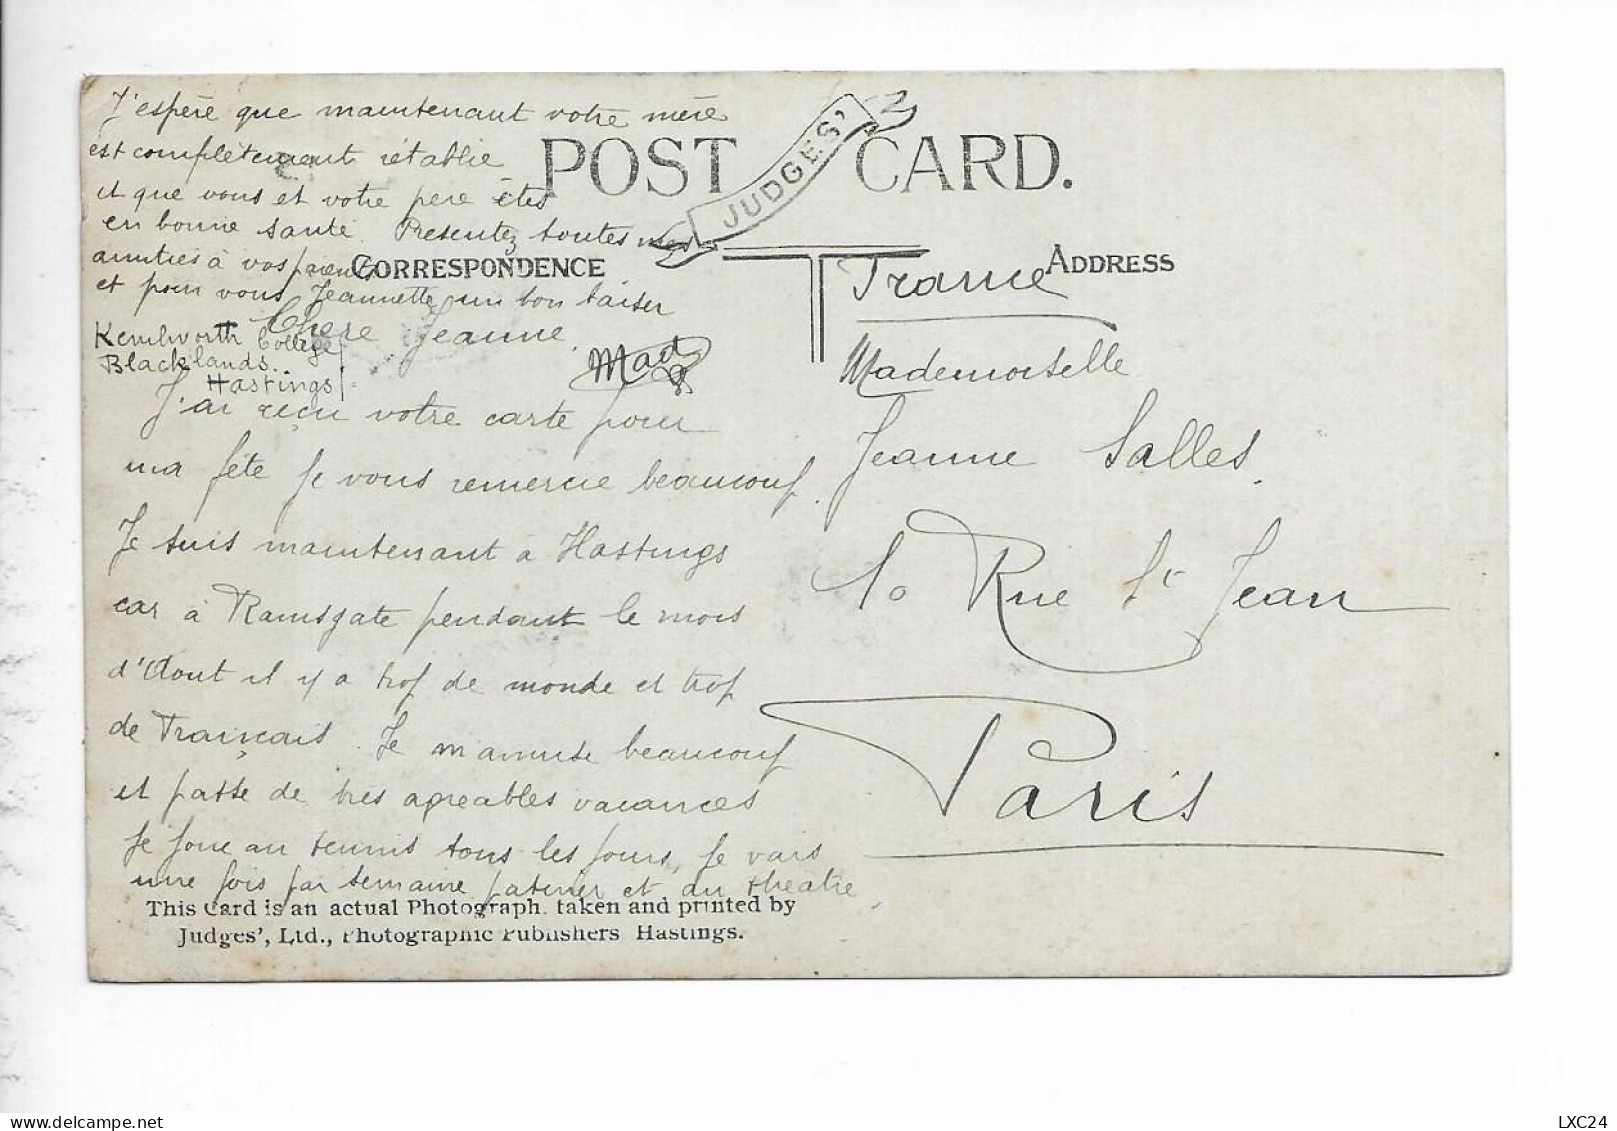 J'espère que maintenant votre mère
est complètement rétablie
et que vous et votre père êtes
en bonne santé. Présentez toutes mes
amitiés à vos parents
et pour vous Jeannette un bon baiser
Mad
POST CARD.
JUDGES'
CORRESPONDENCE
Kenilworth College
Blacklands.
Hastings
Chere Jeanne.
J'ai reçu votre carte pour
ma fête je vous remercie beaucoup.
Je suis maintenant à Hastings
car à Ramsgate pendant le mois
d'Aout il y a trop de monde et trop
de Français. Je m'amuse beaucoup
et passe de tres agreables vacances
Je joue au tennis tous les jours, je vais
une fois par semaine patiner et au théatre.
This Card is an actual Photograph taken and printed by
Judges', Ltd., Photographic Publishers Hastings.
ADDRESS
France
Mademoiselle
Jeanne Salles.
10 Rue St Jean
Paris
LXC24